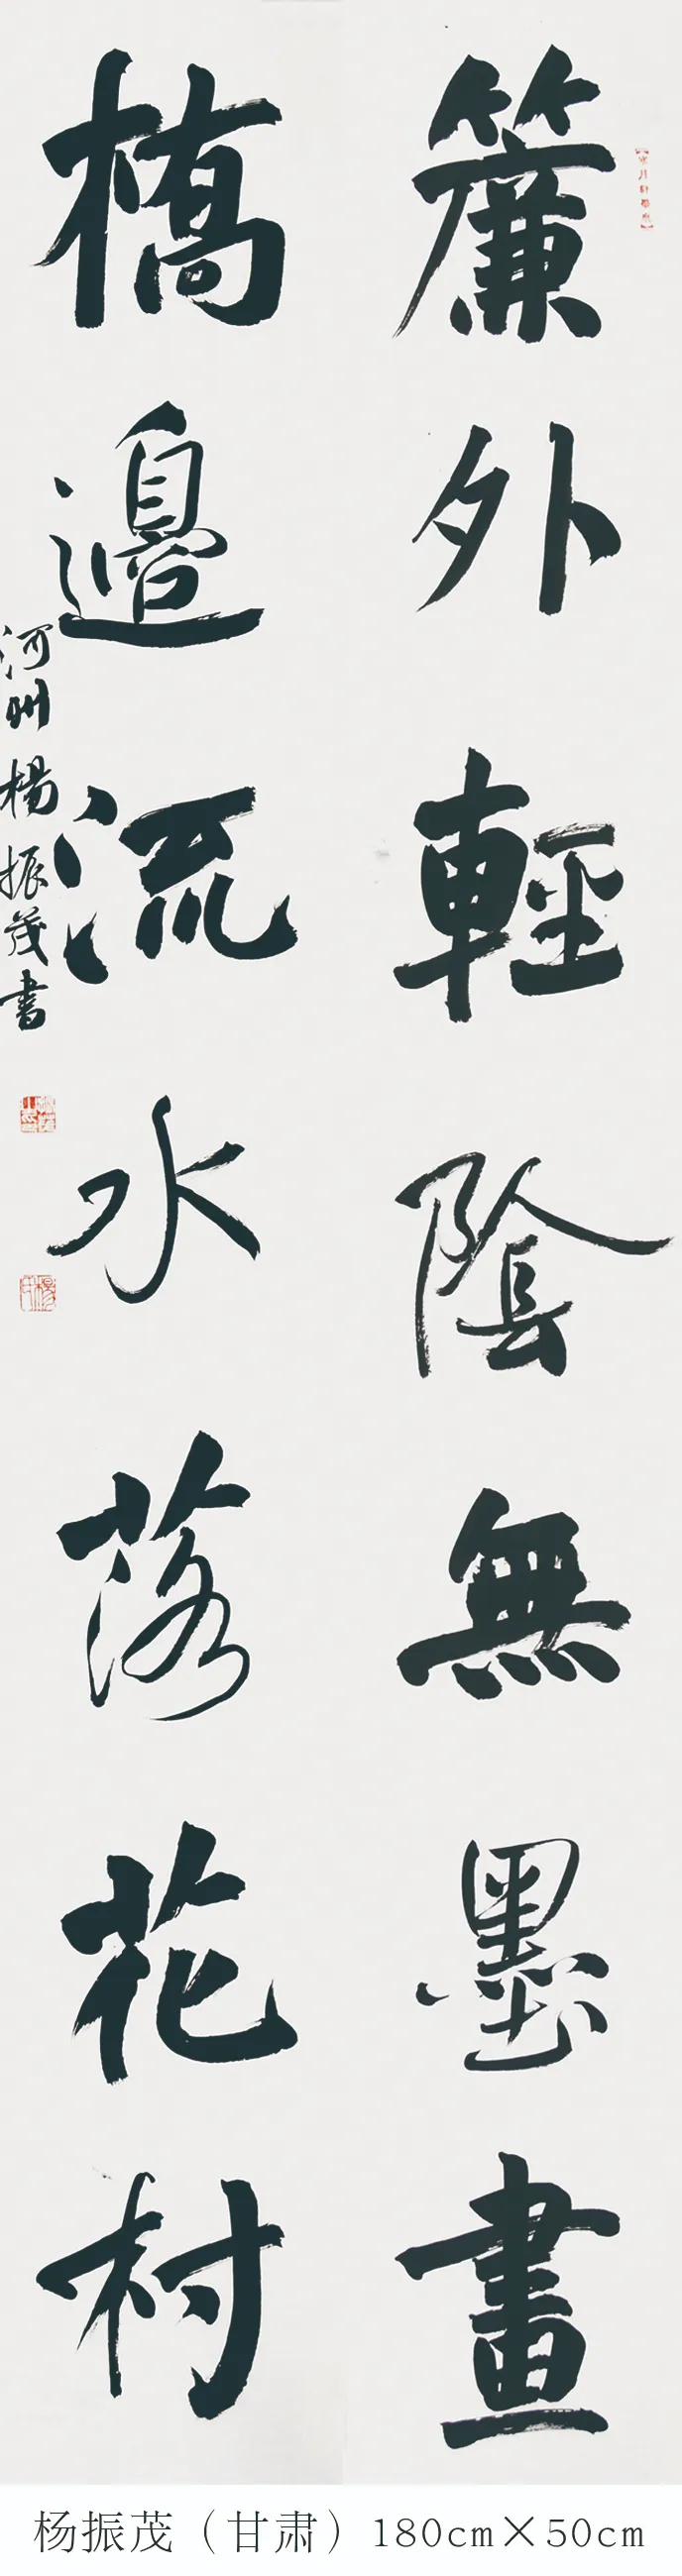 簾外輕陰無墨畫
橋邊流水落花村
河州楊振茂書
杨振茂（甘肃）180cm×50cm